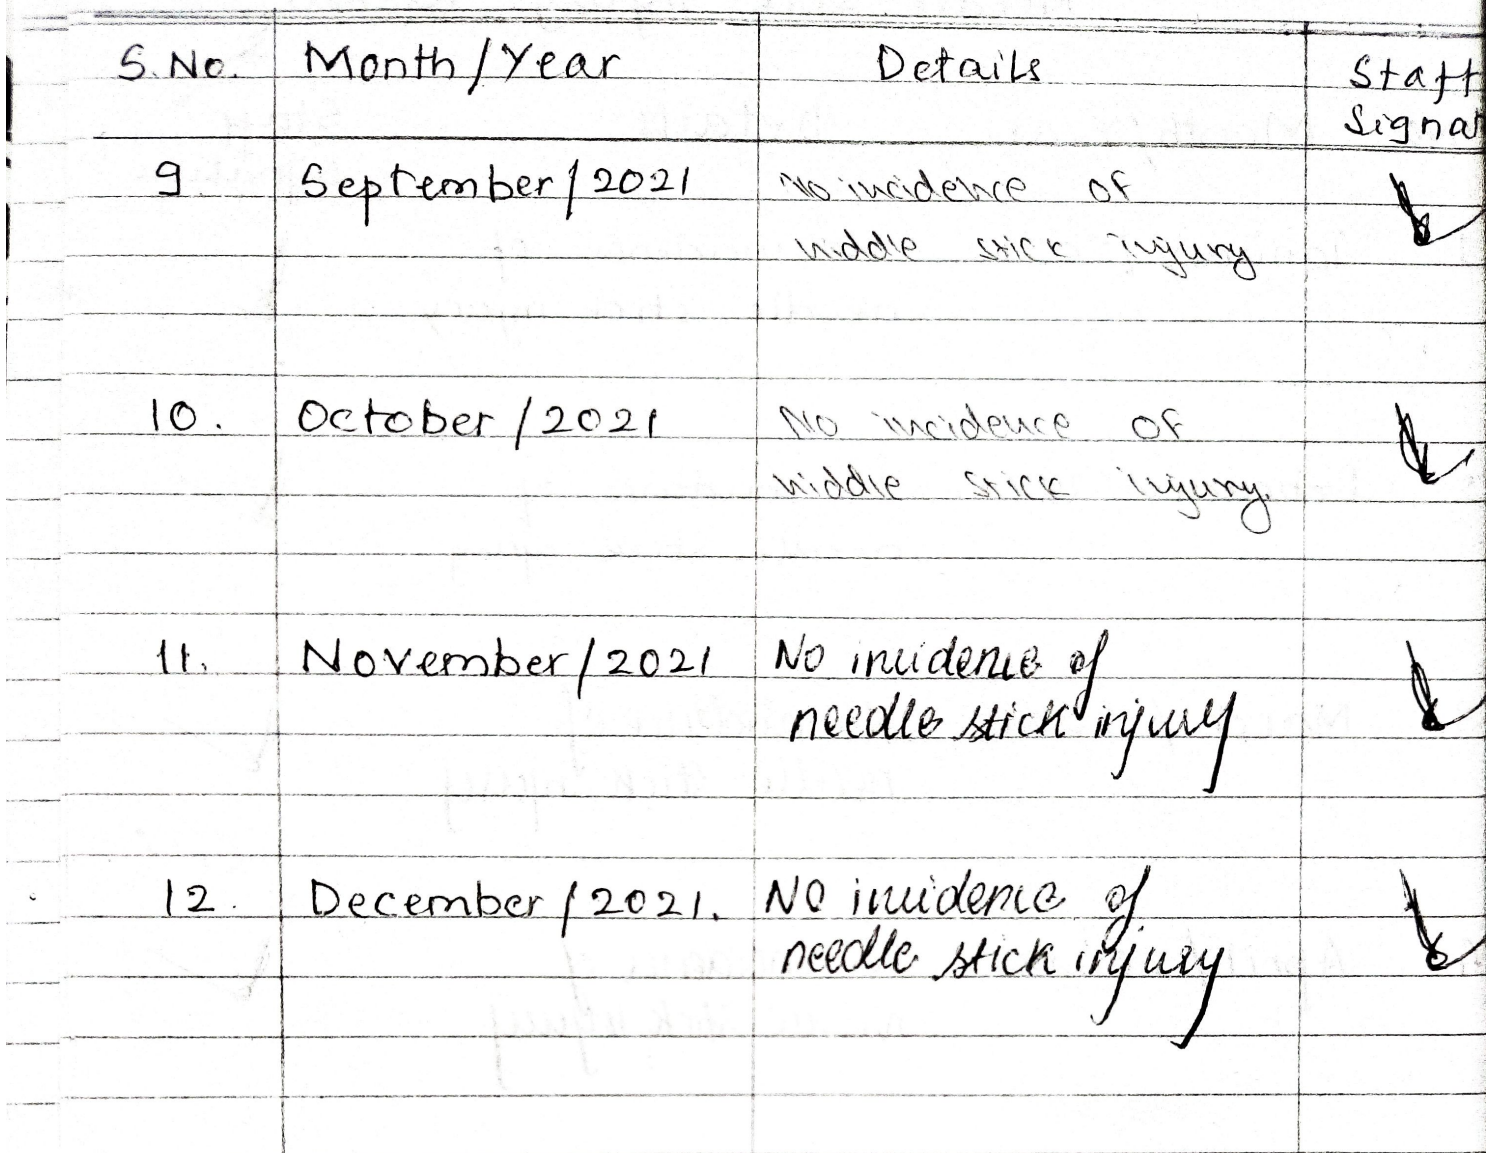 S.No. Month/Year Details Staff
Signa
9 September/2021 No incidence of
niddle stick injury
10. October/2021 No incidence of
niddle stick injury.
11. November/2021 No incidence of
needle stick injury
12. December/2021. No incidence of
needle stick injury